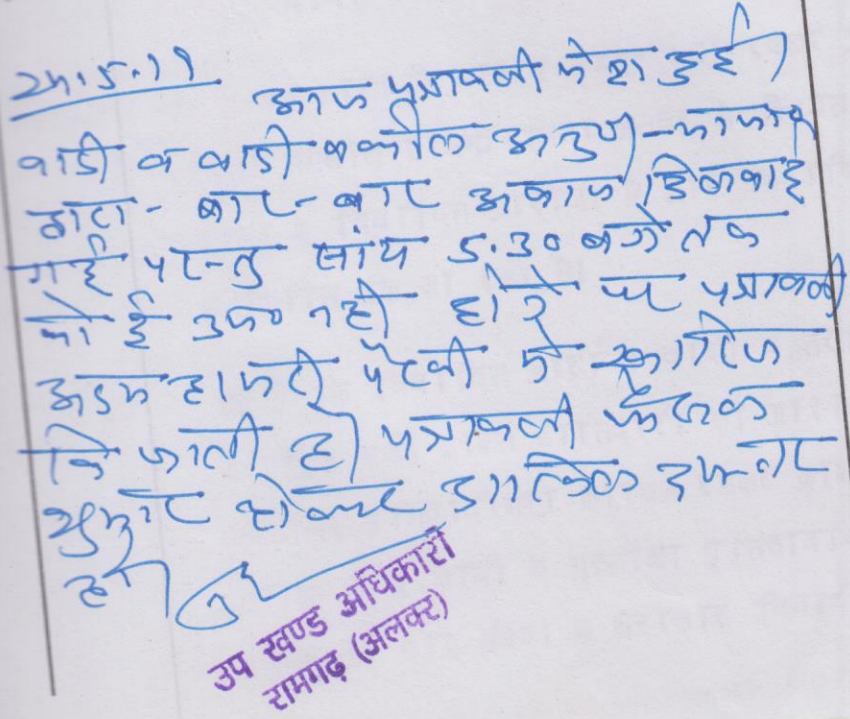 आज पत्रावली पेश हुई।
वादी व वादी वकील अनु०
बार-बार आवाज दिलवाई
गई परन्तु सांय 5.30 बजे तक
कोई उप० नही होने पर पत्रावली
अदम हाजरी पैरवी मे खारिज
कि जाती है। पत्रावली फैसल
शुमार होकर दाखिल दफ्तर
हो।
उप खण्ड अधिकारी
रामगढ़ (अलवर)